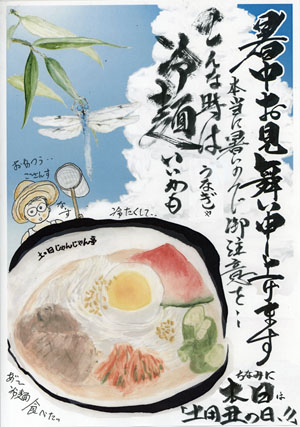 暑中お見舞い申上げます
本当に暑いので御注意を…
こんな時は
うなぎや
冷麺
いいかも
お为つう…
ござんす
冷たくして?…
土の日じゃんじゃん亭
あ〜
冷麺
食べたっ
ちなみに
本日は
「土用丑の日」!!